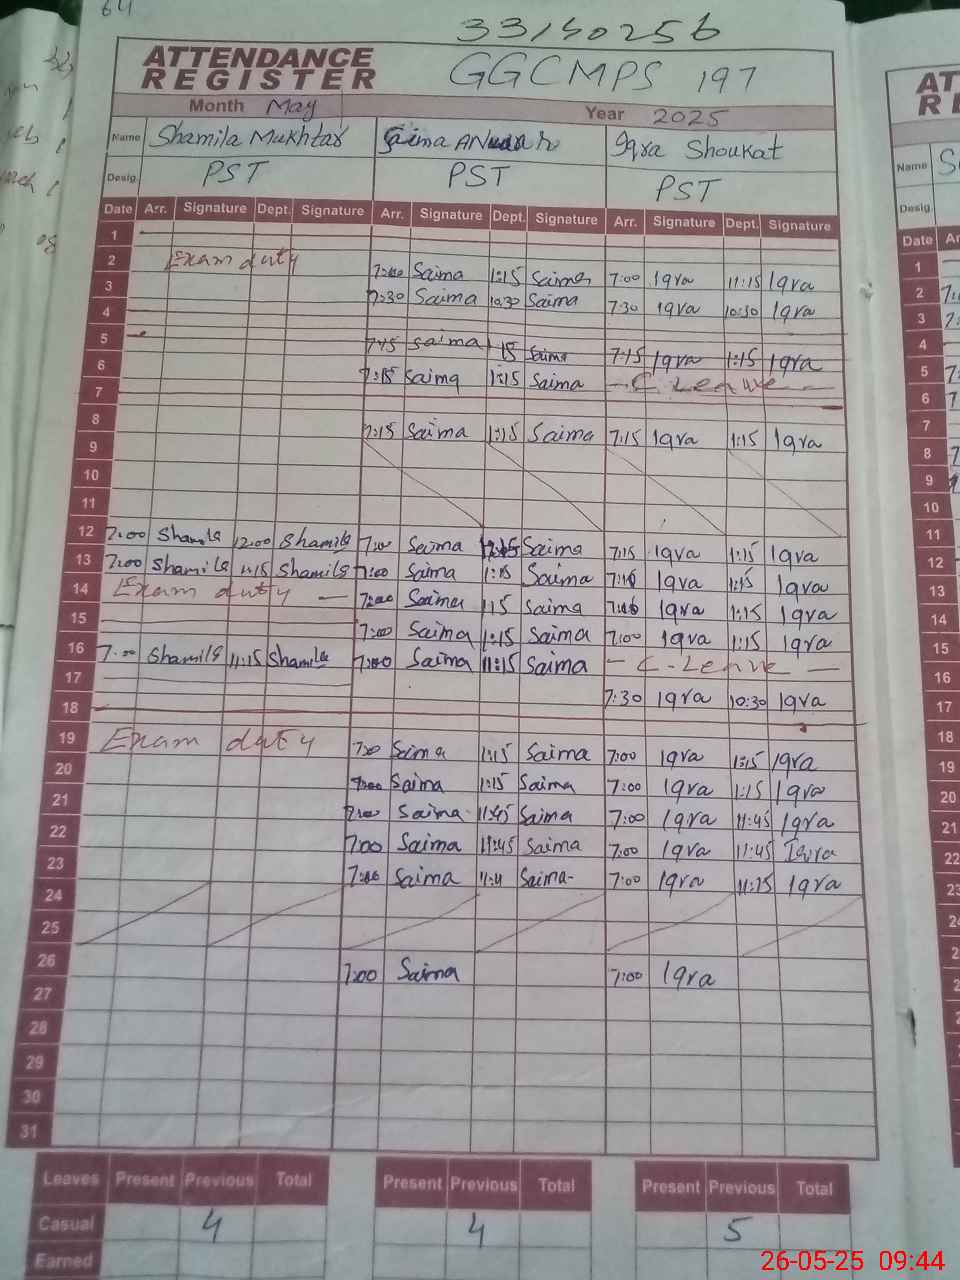 64
33140256
ATTENDANCE REGISTER GGCMPS 197
Month May Year 2025
Name Shamila Mukhtar Saima Iqra Shoukat
Desig. PST PST PST
Date Arr. Signature Dept. Signature Arr. Signature Dept. Signature Arr. Signature Dept. Signature
1
2 Exam duty 7:00 Saima 1:15 Saima 7:00 Iqra 11:15 Iqra
3 7:30 Saima 10:30 Saima 7:30 Iqra 10:30 Iqra
4
5 7:15 Saima 1:15 Saima 7:15 Iqra 1:15 Iqra
6 7:15 Saima 1:15 Saima - C Leave -
7
8 7:15 Saima 1:15 Saima 7:15 Iqra 1:15 Iqra
9
10
11
12 7:00 Shamila 12:00 Shamila 7:00 Saima Saima 7:15 Iqra 1:15 Iqra
13 7:00 Shamila 1:15 Shamila 7:00 Saima 1:15 Saima 7:15 Iqra 1:15 Iqra
14 Exam duty - 7:00 Saima 1:15 Saima Iqra 1:15 Iqra
15 7:00 Saima 1:15 Saima 7:00 Iqra 1:15 Iqra
16 7:00 Shamila 11:15 Shamila 7:00 Saima 11:15 Saima - C-Leave -
17 7:30 Iqra 10:30 Iqra
18
19 Exam duty 7:00 Saima 1:15 Saima 7:00 Iqra 1:15 Iqra
20 7:00 Saima 1:15 Saima 7:00 Iqra 1:15 Iqra
21 7:00 Saima 11:45 Saima 7:00 Iqra 11:45 Iqra
22 7:00 Saima 11:45 Saima 7:00 Iqra 11:45 Iqra
23 7:00 Saima Saima 7:00 Iqra 11:15 Iqra
24
25
26 7:00 Saima 7:00 Iqra
27
28
29
30
31
Leaves Present Previous Total Present Previous Total Present Previous Total
Casual 4 4 5
Earned
26-05-25 09:44